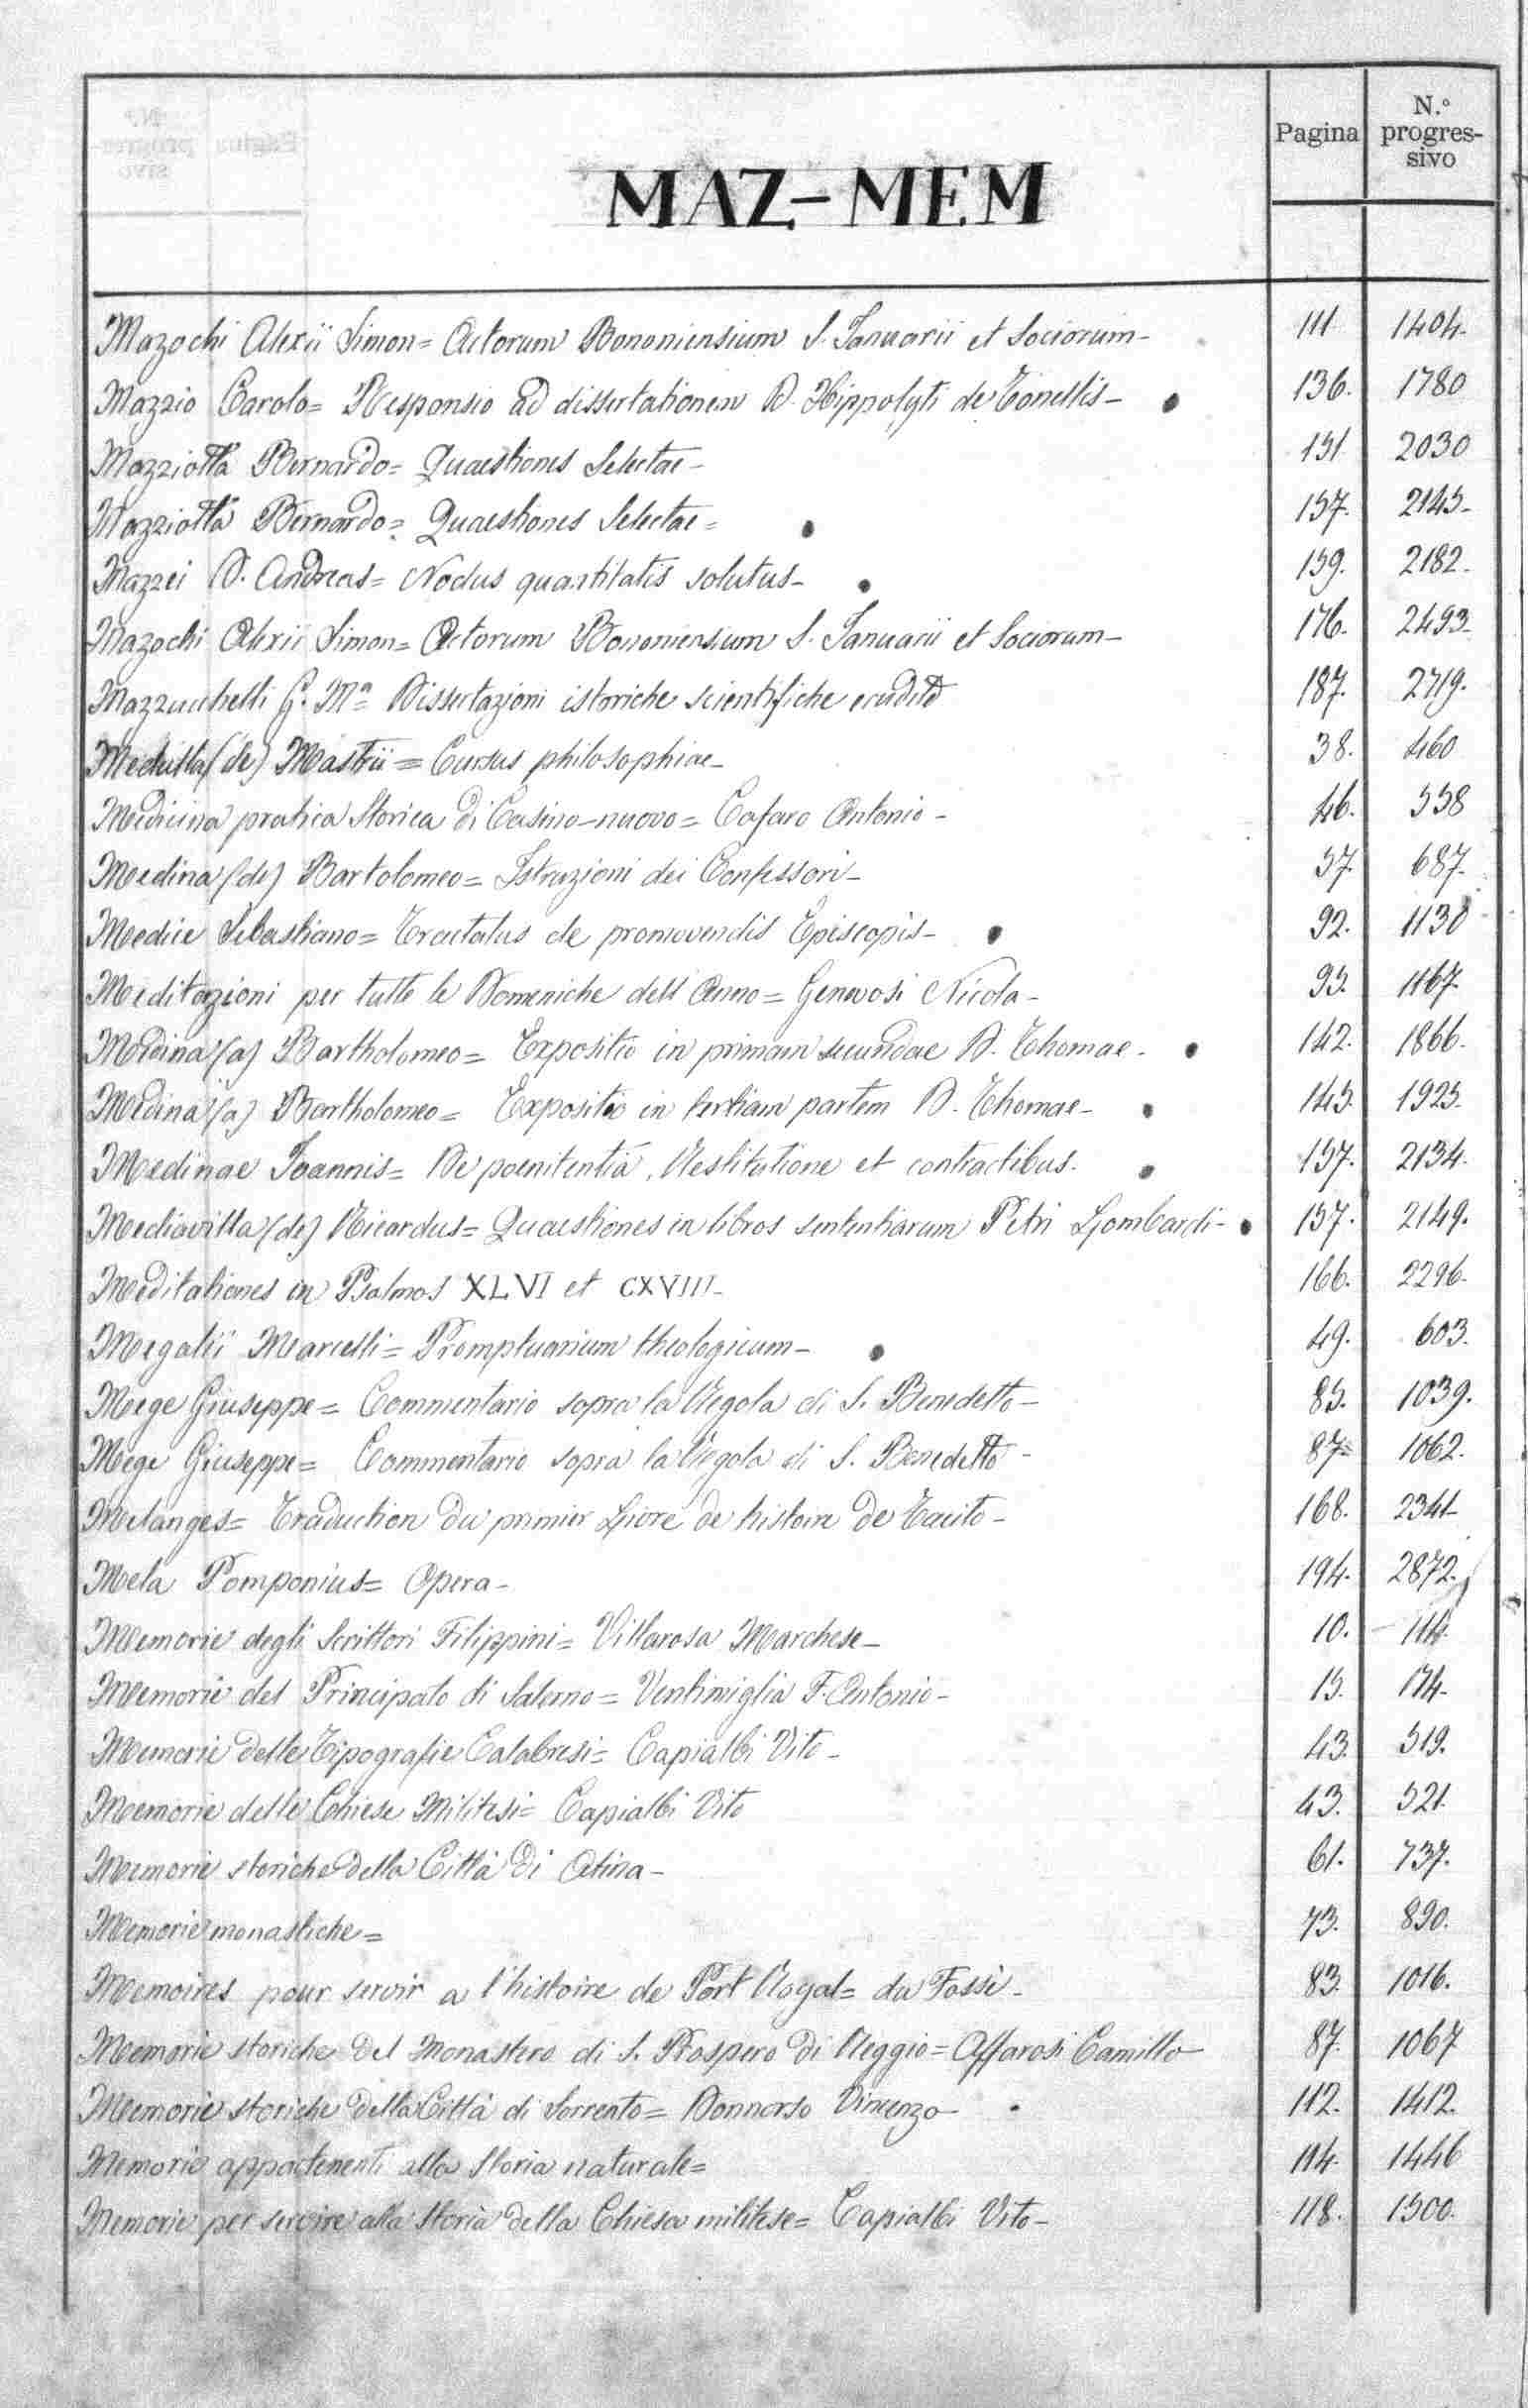 Pagina N.° progres-
sivo
MAZ-MEM
Mazochi Alexii Simon= Actorum Bononiensium S. Januarii et Sociorum- 111 1404.
Mazzio Carolo= Responsio ad dissertationem D. Hippolyti de Tonellis- 136. 1780
Mazziotta Bernardo= Quaestiones Selectae- 151 2030
Mazziotta Bernardo= Quaestiones Selectae= 157. 2145-
Mazzei D. Andreas= Nodus quantitatis solutus- 159. 2182.
Mazochi Alexii Simon= Actorum Bononiensium S. Januarii et Sociorum- 176. 2493-
Mazzucchelli G. Mª Dissertazioni istoriche scientifiche erudite 187. 2719.
(de) Mastrii= Cursus philosophiae- 38. 460
Medicina pratica Storica di Casino-nuovo= Cafaro Antonio- 46. 558
Medina (de) Bartolomeo= Istruzioni dei Confessori- 57. 687.
Medice Sebastiano= Tractatus de promovendis Episcopis- 92. 1130
Meditazioni per tutte le Domeniche dell'Anno= Genovosi Nicola- 95. 1167.
Medina (a) Bartholomeo= Expositio in primam secundae D. Thomae- 142. 1866.
Medina (a) Bartholomeo= Expositio in tertiam partem D. Thomae- 145. 1925.
Medinae Joannis= De poenitentia, Restitutione et contractibus. 157. 2134.
Mediavilla (de) Ricardus= Quaestiones in libros sententiarum Petri Lombardi- 157. 2149.
Meditationes in Psalmos XLVI et CXVIII- 166. 2296.
Megalii Marcelli= Promptuarium theologicum- 49. 603.
Mege Giuseppe= Commentario sopra la Regola di S. Benedetto- 85. 1039.
Mege Giuseppe= Commentario sopra la Regola di S. Benedetto- 87= 1062.
Melanges= Traduction du primier Livre de histoire de Tacito- 168. 2341-
Mela Pomponius= Opera- 194. 2872.
Memorie degli Scrittori Filippini= Villarosa Marchese- 10. 114.
Memorie del Principato di Salerno= Ventimiglia F. Antonio- 15. 174-
Memorie delle Tipografie Calabresi= Capialbi Vito- 43. 519.
Memorie delle Chiese Militesi= Capialbi Vito 43. 521.
Memorie storiche della Città di Atina- 61. 737.
Memorie monastiche= 73. 890.
Memoires pour servir a l'histoire de Port Royal= du Fossè- 83. 1016.
Memorie storiche del Monastero di S. Prospero di Reggio= Affarosi Camillo- 87. 1067
Memorie storiche della Città di Sorrento= Donnorso Vincenzo- 112. 1412.
Memorie appartenenti alla Storia naturale= 114. 1446
Memorie per servire alla Storia della Chiesa militese= Capialbi Vito- 118. 1500.